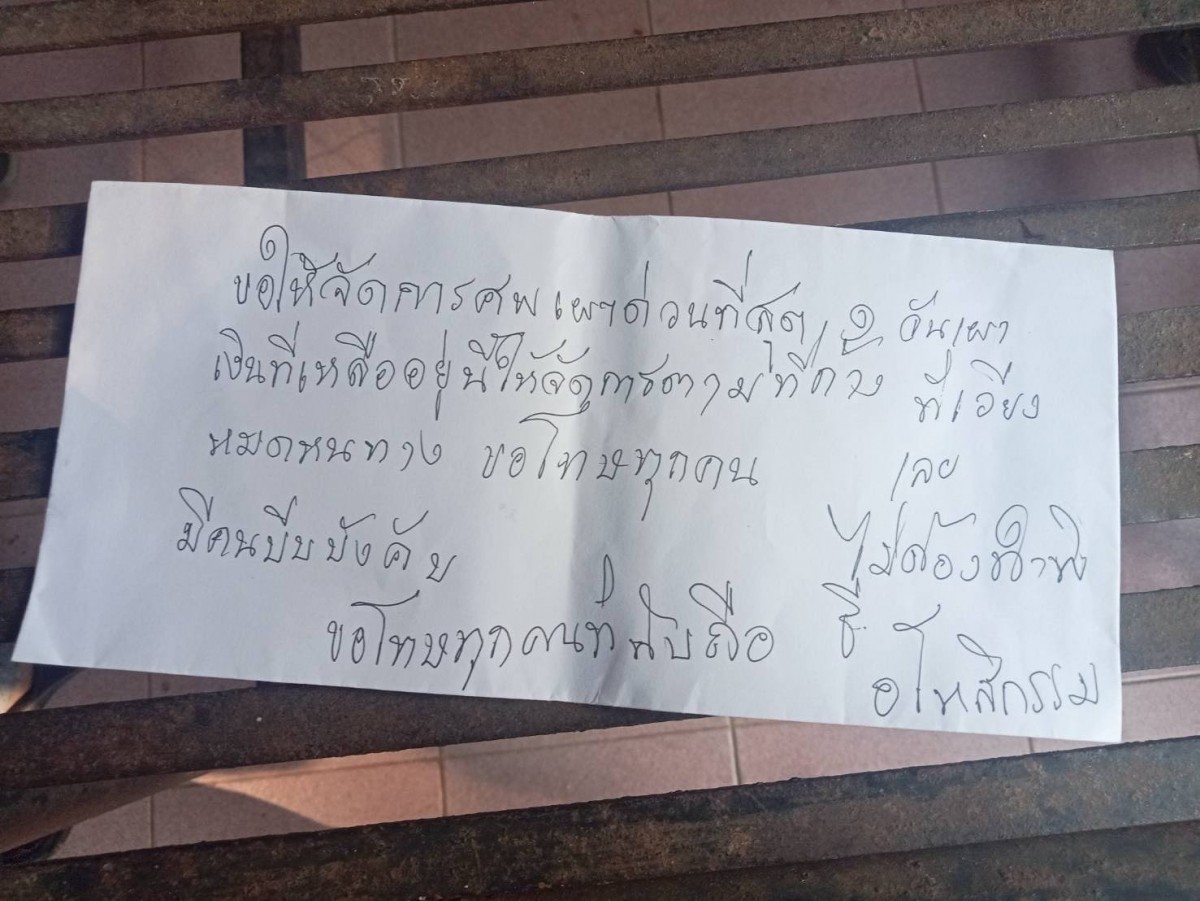 ขอให้จัดการศพเผาด่วนที่สุด, ๑ วันเผา
เงินที่เหลืออยู่นี้ให้จัดการตามที่ค้าง ที่เวียง
หมดหนทาง ขอโทษทุกคน เลย
มีคนบีบบังคับ ไม่ต้องทำพิ
ขอโทษทุกคนที่นับถือ ธี.
อโหสิกรรม